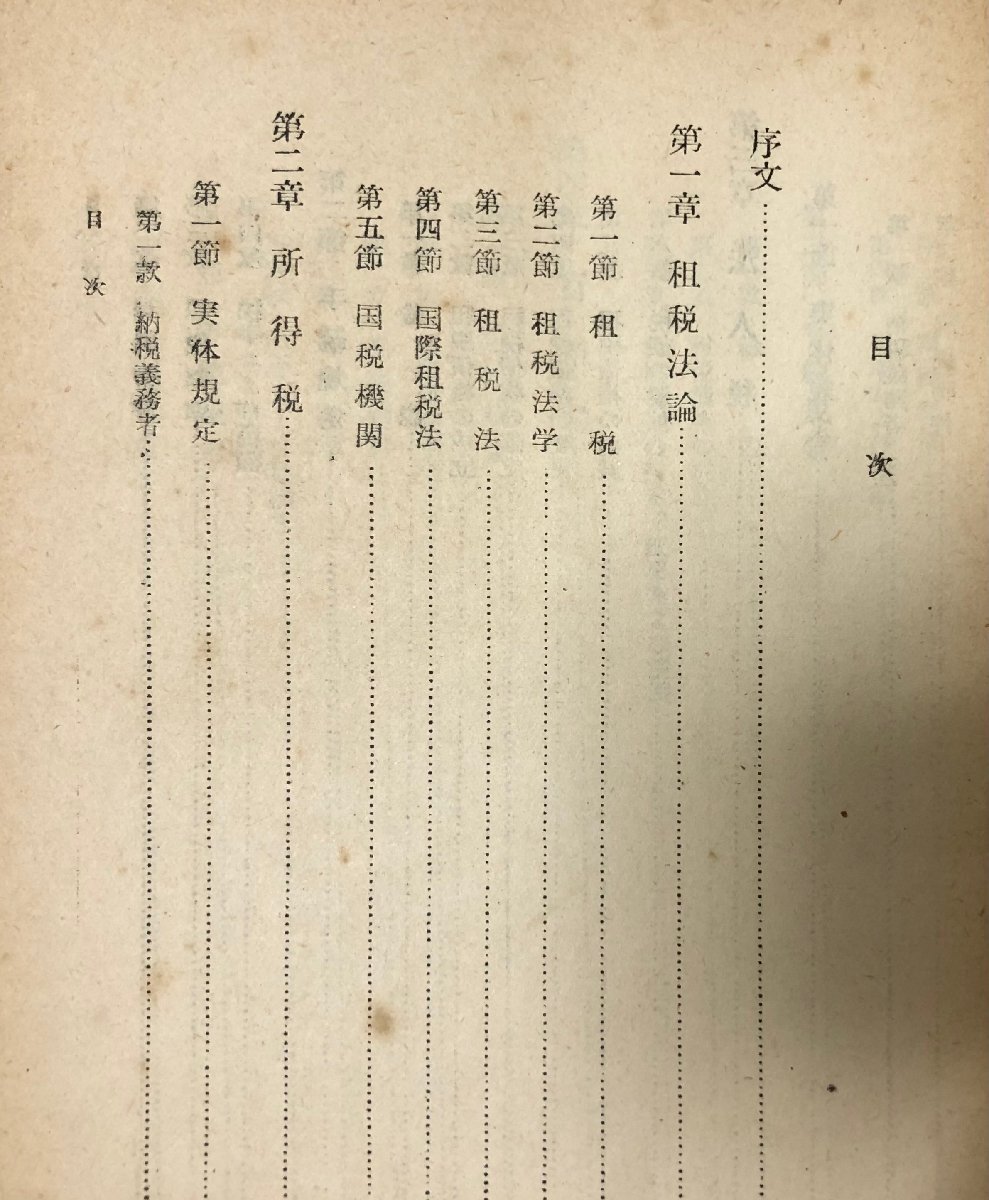 目次
序文
第一章 租税法論
第一節 租税
第二節 租税法学
第三節 租税法
第四節 国際租税法
第五節 国税機関
第二章 所得税
第一節 実体規定
第一款 納税義務者
目次